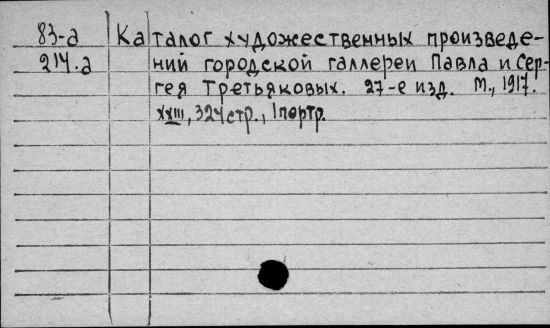 83-а Каталог художественных произведе-
214.а ний городской галлереи Павла и Сер-
гея Третьяковых. 27-е изд. М., 1917.
XXIII, 324 стр., 1 портр.